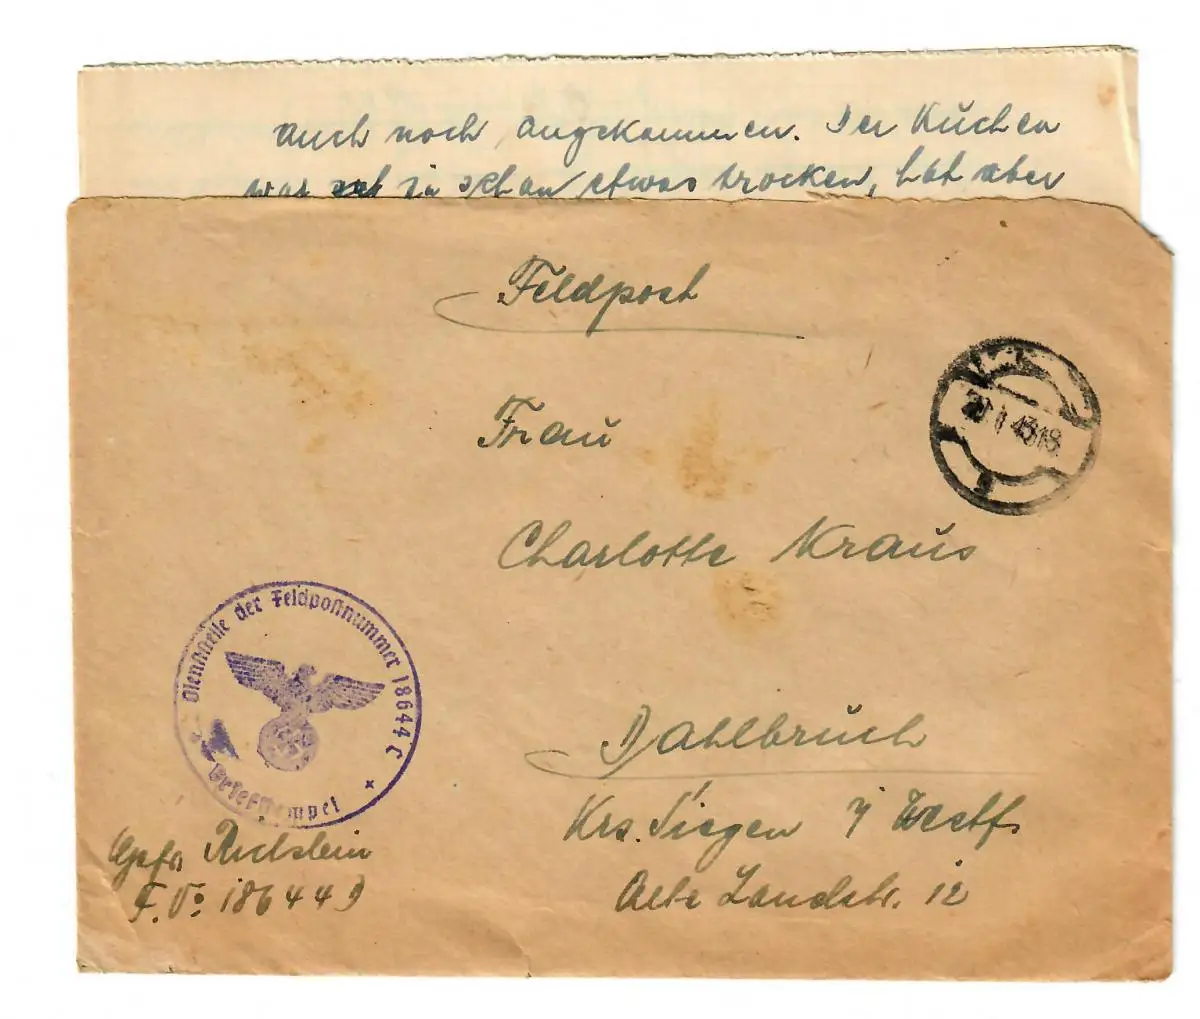 auch noch angekommen. Der Kuchen
war ja schon etwas trocken, hat aber
Feldpost
Frau
Charlotte Kraus
Dahlbruch
Krs. Siegen i/Westf.
Alte Landstr. 12
43 18
Dienststelle der Feldpostnummer 18644 C
Briefstempel
Gefr.
F.P. 18644 D